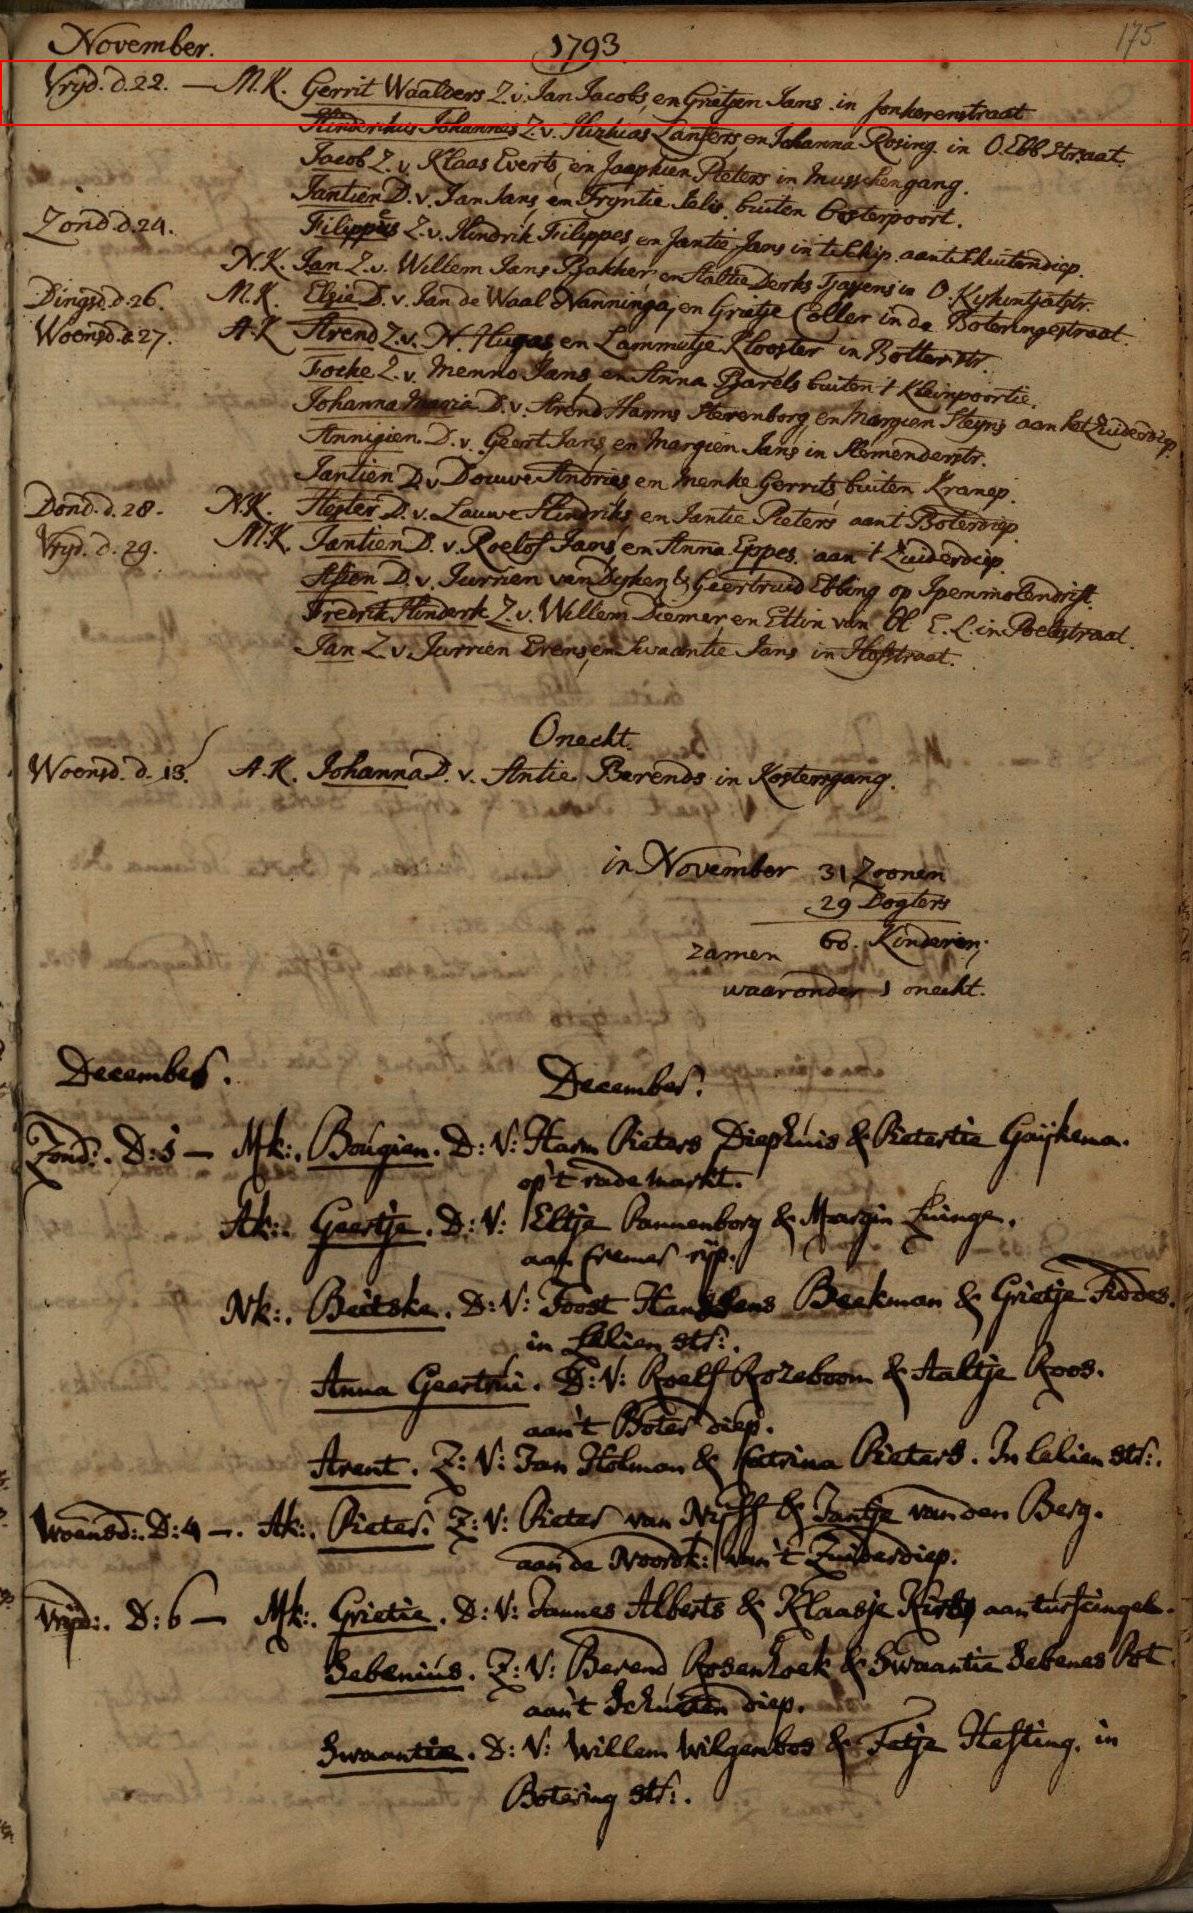 November. 1793. 175
Vryd. d. 22. — M.K. Gerrit Waalders Z. v. Jan Jacobs, en Grietjen Jans. in Jonkerenstraat
Hinderikus Johannes Z. v. Hizkias Lanfers, en Johanna Rosing. in O. Ebb straat.
Jacob Z. v. Klaas Everts, en Jaapkien Pieters in Musschengang.
Jantien D. v. Jan Jans, en Tryntie Jelis. buiten Oosterpoort.
Zond. d. 24. Filippus Z. v. Hindrik Filippes en Jantie Jans in t Schip. aan t Schuitendiep.
N.K. Jan Z. v. Willem Jans Bakker, en Aaltie Derks Tjassens in O. Kykintjatstr.
Dingsd. d. 26. M.K. Elsie D. v. Jan de Waal Nanninga, en Grietje Coller in de Boteringestraat.
Woensd. d. 27. A.K Arend Z. v. N. Hugas, en Lammutje Klooster in Botterstr.
Focke Z. v. Menno Jans, en Anna Barels buiten t Kleinpoortie.
Johanna Maria D. v. Arend Harms Sterenborg en Margien Steyns aan het Zuiderdiep.
Annigien. D. v. Geert Jans, en Margien Jans in
Jantien D. v Douwe Andries, en Menke Gerrits buiten Kranep.
Dond. d. 28. N.K. Hester D. v. Lauwe Hindriks, en Jantie Pieters aan t Boterdiep.
Vryd. d. 29. M.K. Jantien D. v. Roelof Jans, en Anna Eppes. aan 't Zuiderdiep.
D. v. Jurrien van Dyken, & Geertruid Ebbing op Ipenmolendrift.
Fredrik Hinderk Z. v. Willem Diemer, en Ettin van E. L. in Poelestraat.
Jan Z. v. Jurrien Evens, en Swaantie Jans in Hofstraat.
Onecht.
Woensd. d. 13. A.K. Johanna D. v. Antie Berends in Kostersgang.
in November 31 Zoonen
29 Dogters
zamen 60. Kinderen,
waaronder 1 onecht.
December. December.
Zond:. D: 1 — Mk:. Bougien. D: V: Harm Pieters Diephuis & Pietertie Gaijkema.
op't rade markt.
Ak:. Geertje. D: V: Eltje Pannenborg & Margin Luinge.
aan Cremer rijp.
Nk:. Beitske. D: V: Joost Hanssens Beekman & Grietje Fiddes.
in Lelien str:.
Anna Geertrui. D: V: Roelf Rozeboom & Aaltje Roos.
aan't Boter diep.
Arent. Z: V: Jan Holman & Catrina Pieters. In Lelien str:.
Woensd:. D: 4 —. Ak:. Pieter. Z: V: Pieter van Nijff & Jantje van den Berg.
aan de Noordk: van't Zuiderdiep.
Vrijd:. D: 6 — Mk:. Grietie. D: V: Jannes Alberts & Klaasje
Sebenius. Z: V: Berend Rosenhoek & Swaantie Sebenes Pot
aan't Schuiten diep.
Swaantie. D: V: Willem Wilgenbos & Fetje Hesting. in
Botering str:.